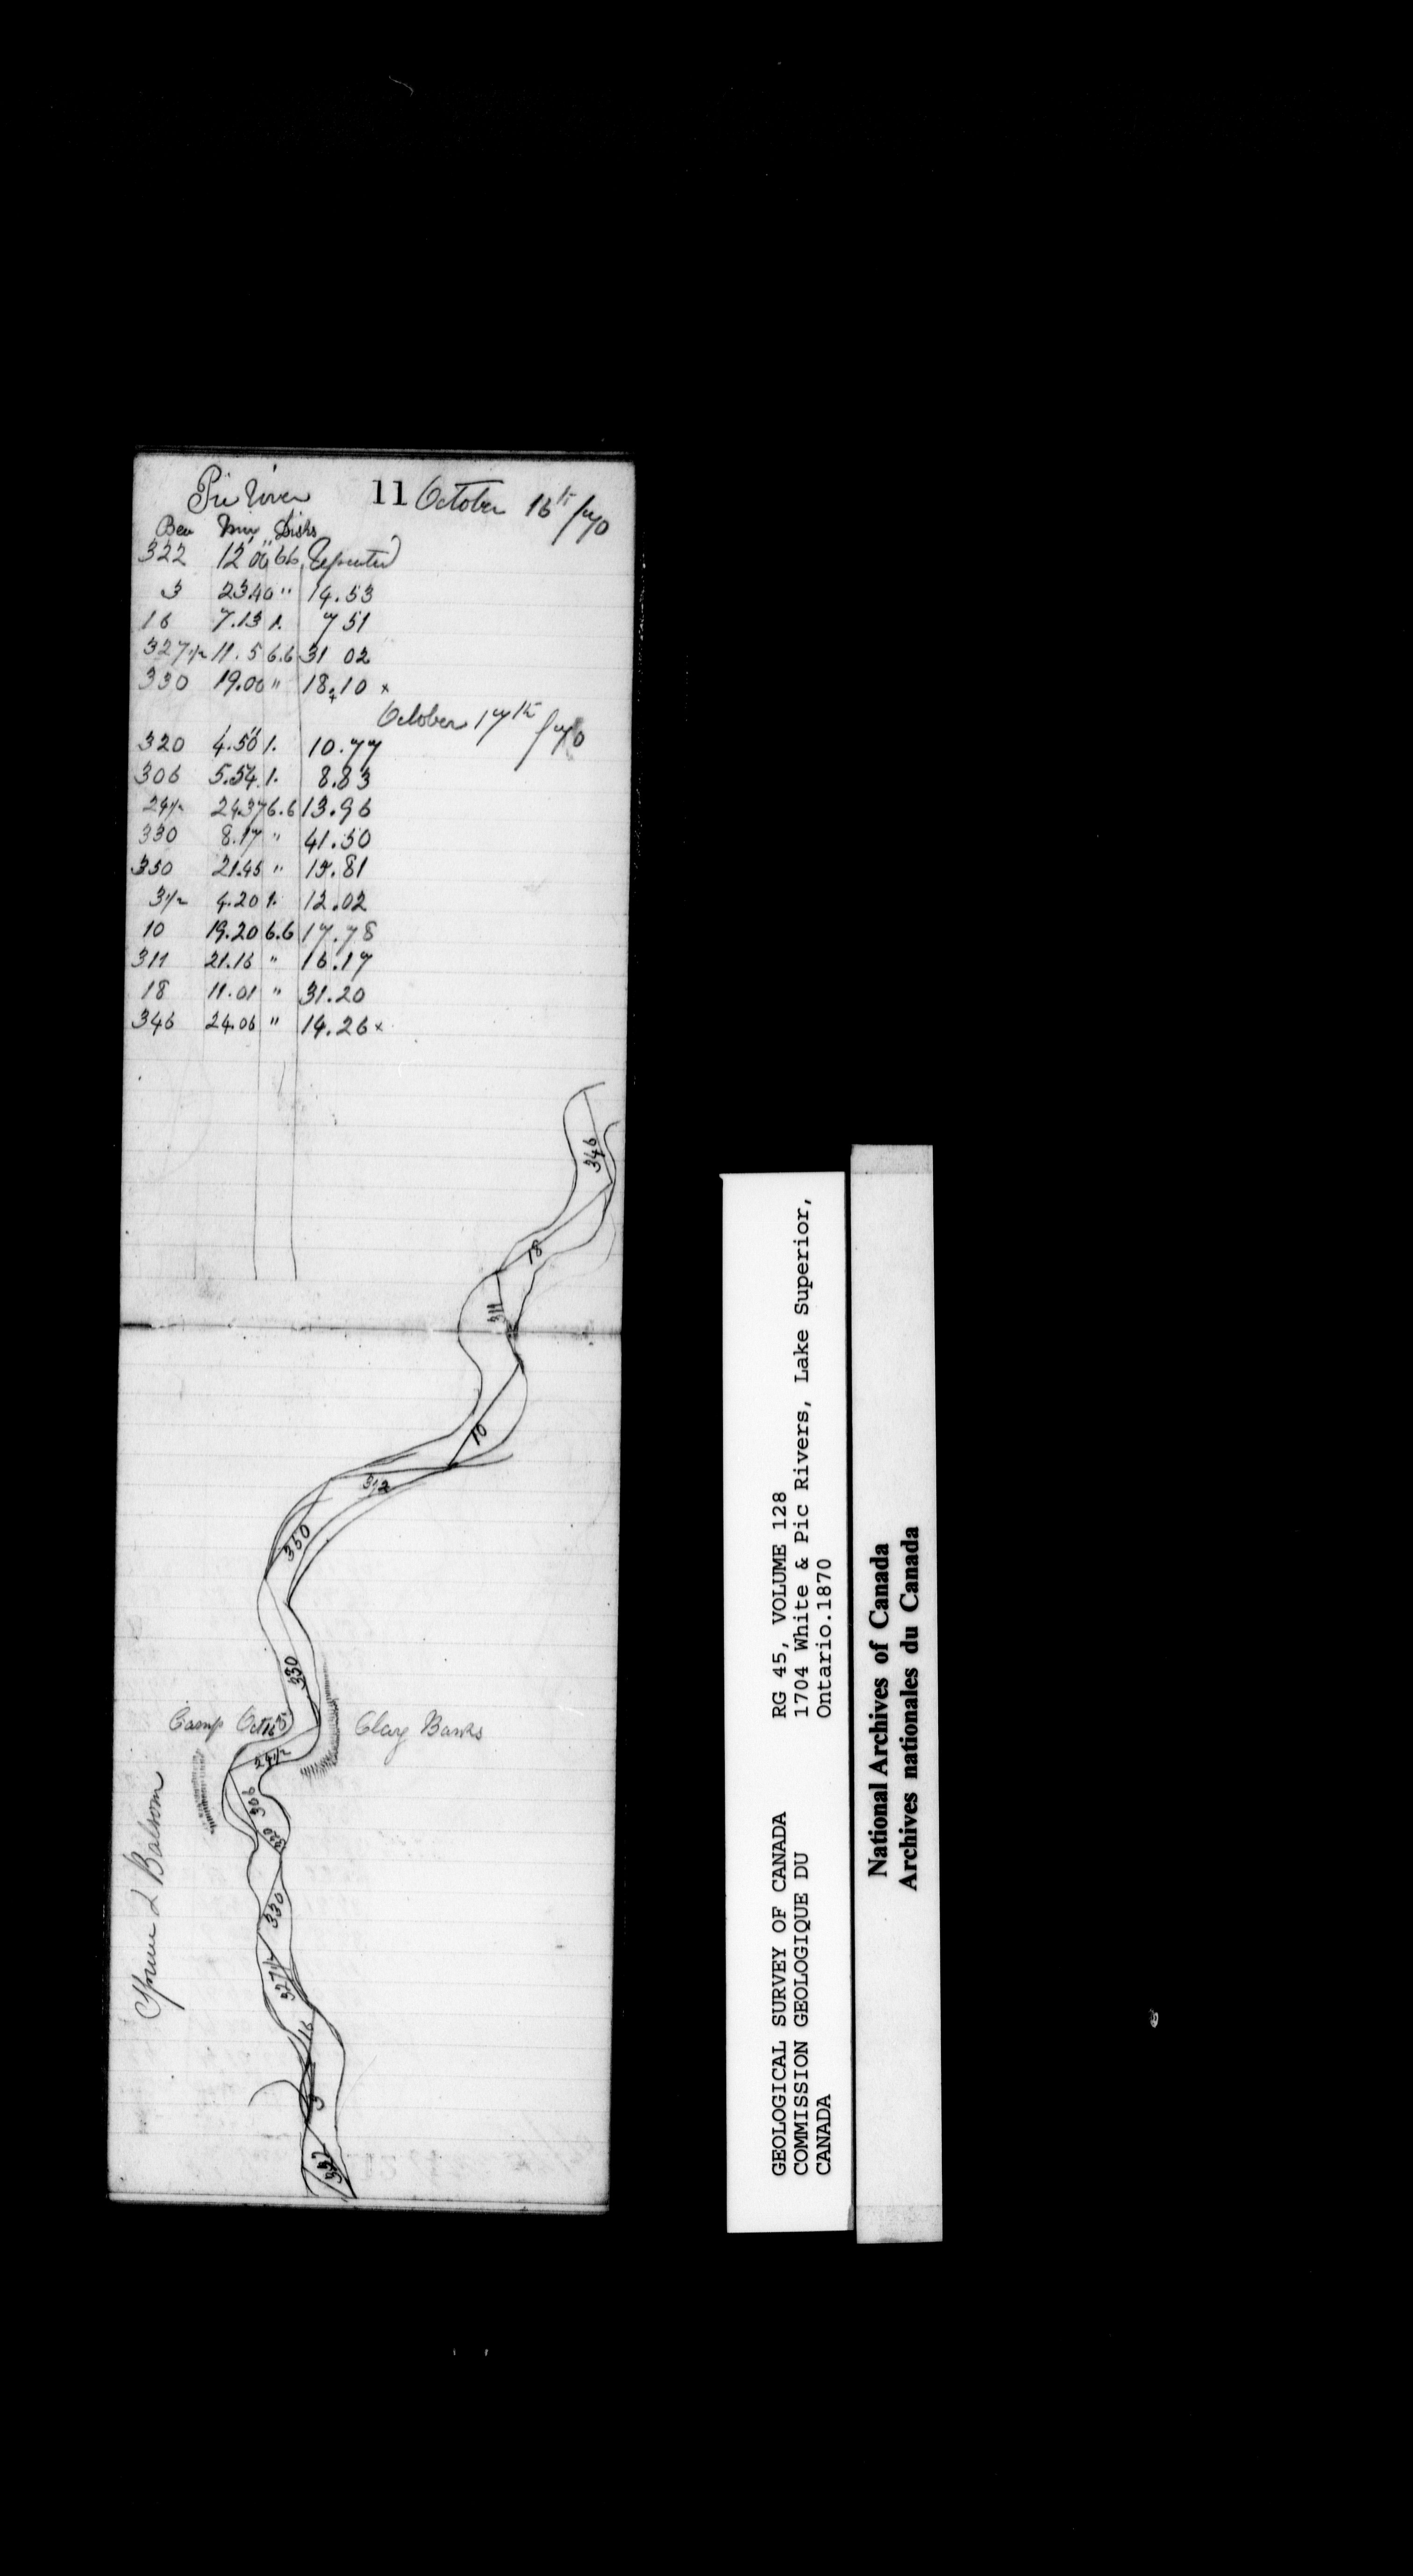 Pic River 11 October 16th/70
Bea Min Disks
322 12'06" 66 Repeated
3 23.40 " 14.53
16 7.13 1. 7 51
327½ 11.5 6.6 31 02
330 19.00 " 18.10 x
October 17th/70
320 4.50 1. 10.77
306 5.54 1. 8.83
24½ 24.37 6.6 13.96
330 8.17 " 41.50
350 21.45 " 15.81
3½ 4.20 1. 12.02
10 19.20 6.6 17.78
311 21.16 " 16.17
18 11.01 " 31.20
346 24.06 " 14.26 x
346
18
311
10
3½
350
330
Camp Oct 16th
Clay Banks
24½
306
320
Spruce & Balsom
330
327½
16
3
322
GEOLOGICAL SURVEY OF CANADA
COMMISSION GEOLOGIQUE DU
CANADA
RG 45, VOLUME 128
1704 White & Pic Rivers, Lake Superior,
Ontario.1870
National Archives of Canada
Archives nationales du Canada